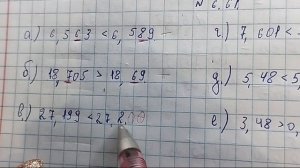 № 6,61.
а) 6,563 < 6,589
г) 7,601 <
б) 18,705 > 18,69
д) 5,48 < 5,
в) 27,199 < 27,200
е) 3,48 > 0,